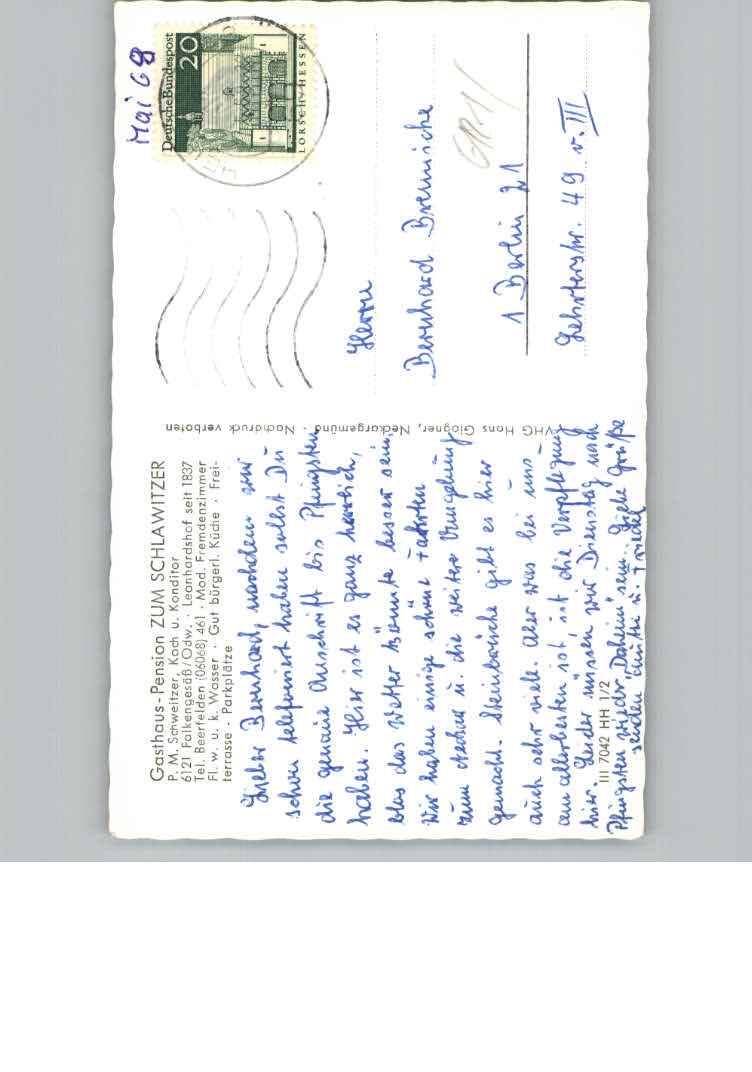 Gasthaus-Pension ZUM SCHLAWITZER
P. M. Schweitzer, Koch u. Konditor
6121 Falkengesäß/Odw. · Leonhardshof seit 1837
Tel. Beerfelden (06068) 461 · Mod. Fremdenzimmer
Fl. w. u. k. Wasser · Gut bürgerl. Küche · Frei-
terrasse · Parkplätze
Lieber Bernhard, nachdem wir
schon telefoniert haben sollst Du
die genaue Anschrift bis Pfingsten
haben. Hier ist es ganz herrlich,
blos das Wetter könnte besser sein
Wir haben einige schöne Fahrten
zum Neckar u. die weitere Umgebung
gemacht. Steinbrüche gibt es hier
auch sehr viele. Aber was bei uns
am allerbesten ist, ist die Verpflegung
hier. Leider müssen wir Dienstag nach
Pfingsten wieder "Daheim" sein. Liebe Grüße
senden u. Friedel
III 7042 HH 1/2
VHG Hans Glogner, Neckargemünd · Nachdruck verboten
Mai 68
Deutsche Bundespost
20
LORSCH/HESSEN
Herrn
Bernhard Bremische
GR1/
1 Berlin 21
Lehrterstr. 49 v. III